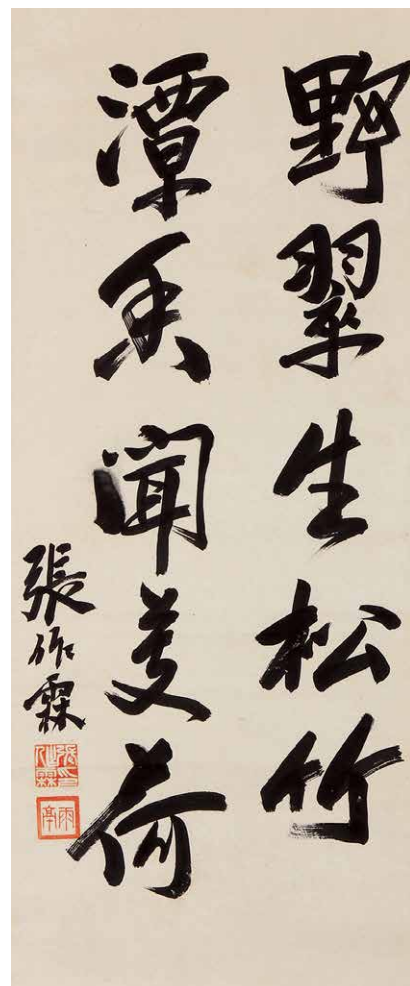 野翠生松竹
潭香聞芰荷
張作霖
張作霖印
雨亭